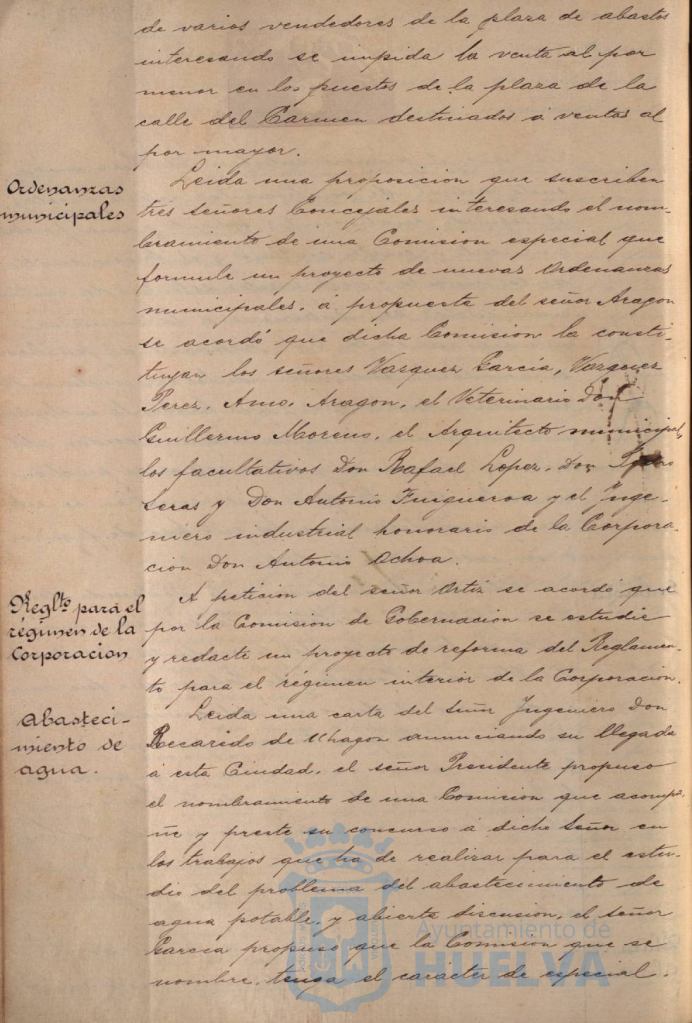 de varios vendedores de la plaza de abastos
interesando se impida la venta al por
menor en los puestos de la plaza de la
calle del Carmen destinados á ventas al
por mayor.
Ordenanzas
municipales
Leida una proposicion que suscriben
tres señores Concejales interesando el nom-
bramiento de una Comision especial que
formule un proyecto de nuevas Ordenanzas
municipales, á propuesta del señor Aragon
se acordó que dicha Comision la consti-
tuyan los señores Vazquez Garcia, Vazquez
Perez, Amo, Aragon, el Veterinario Don
Guillermo Moreno, el Arquitecto municipal,
los facultativos Don Rafael Lopez, Don
Seras y Don Antonio Fuigueroa y el Inge-
niero industrial honorario de la Corpora-
cion Don Antonio Ochoa.
Reglto para el
régimen de la
Corporacion
A peticion del señor Ortiz se acordó que
por la Comision de Gobernacion se estudie
y redacte un proyecto de reforma del Reglamen-
to para el régimen interior de la Corporacion.
Abasteci-
miento de
agua.
Leida una carta del Señor Ingeniero Don
Recaredo de Uhagon anunciando su llegada
á esta Ciudad, el señor Presidente propuso
el nombramiento de una Comision que acompa-
ñe y preste su concurso á dicho Señor en
los trabajos que ha de realizar para el estu-
dio del problema del abastecimiento de
agua potable, y abierta discusion, el señor
Garcia propuso que la Comision que se
nombre, tenga el carácter de especial.
Ayuntamiento de
HUELVA